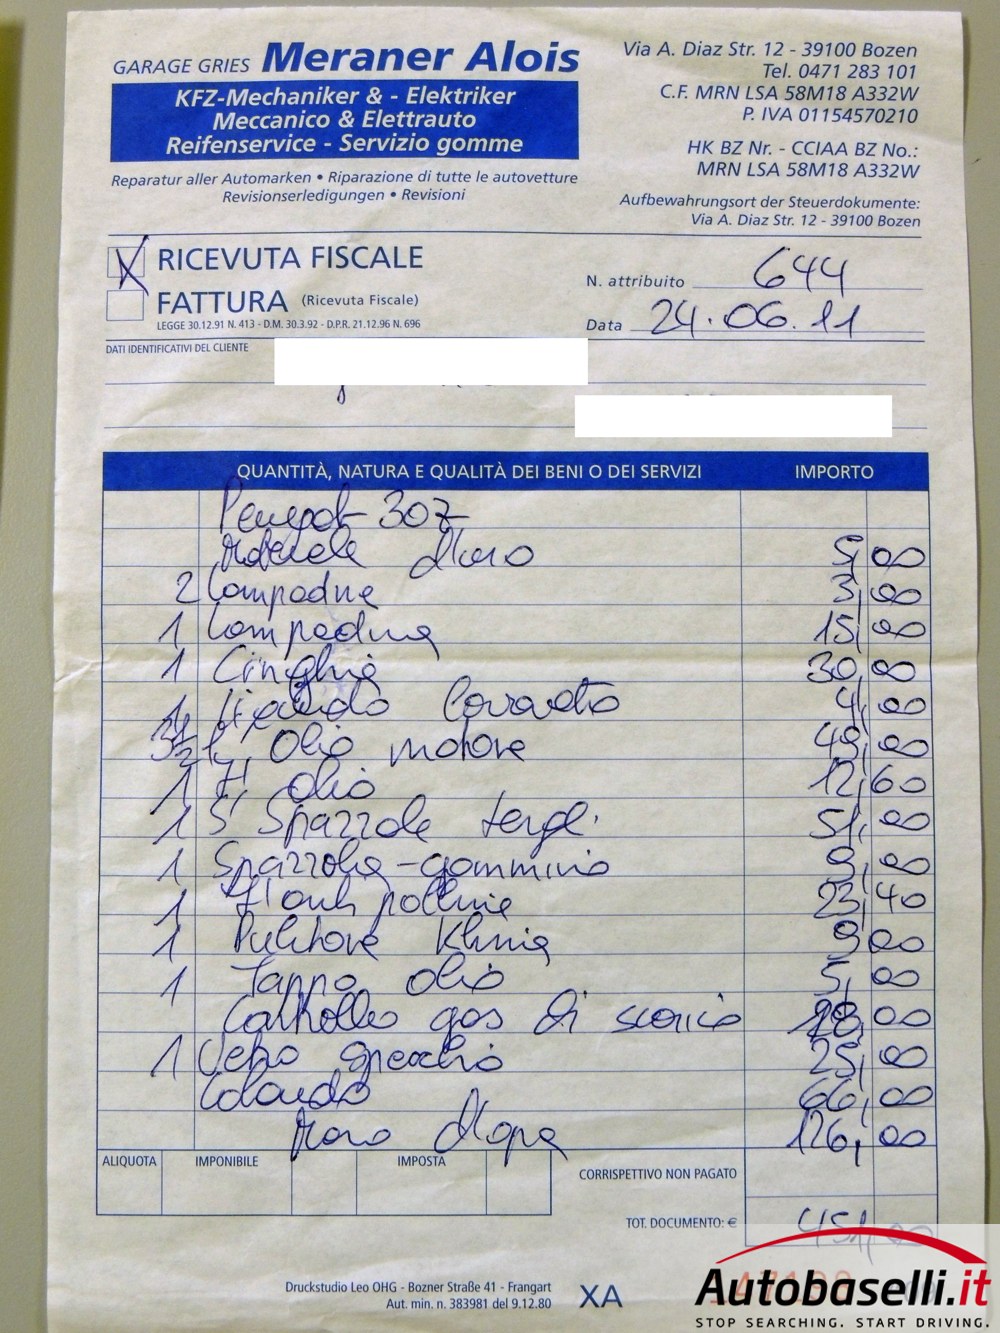 GARAGE GRIES Meraner Alois
KFZ-Mechaniker & - Elektriker
Meccanico & Elettrauto
Reifenservice - Servizio gomme
Reparatur aller Automarken • Riparazione di tutte le autovetture
Revisionserledigungen • Revisioni
Via A. Diaz Str. 12 - 39100 Bozen
Tel. 0471 283 101
C.F. MRN LSA 58M18 A332W
P. IVA 01154570210
HK BZ Nr. - CCIAA BZ No.:
MRN LSA 58M18 A332W
Aufbewahrungsort der Steuerdokumente:
Via A. Diaz Str. 12 - 39100 Bozen
X RICEVUTA FISCALE
FATTURA (Ricevuta Fiscale)
LEGGE 30.12.91 N. 413 - D.M. 30.3.92 - D.P.R. 21.12.96 N. 696
N. attribuito 644
Data 24.06.11
DATI IDENTIFICATIVI DEL CLIENTE
QUANTITÀ, NATURA E QUALITÀ DEI BENI O DEI SERVIZI IMPORTO
Peugeot 307
Materiale 5,00
2 Lampadine 3,00
1 Lampadina 15,00
1 Cinghia 30,00
1 Liquido 4,00
Olio motore 49,00
1 olio 12,60
1 Spazzole tergi 51,00
1 Spazzola-gommino 9,00
1 polline 23,40
1 Pulitore Klima 9,00
1 Tappo olio 5,00
Controllo gas di scarico 18,00
1 Vetro specchio 25,00
Collaudo 66,00
Mano d'opera 126,00
ALIQUOTA IMPONIBILE IMPOSTA
CORRISPETTIVO NON PAGATO
TOT. DOCUMENTO: € 451,00
Druckstudio Leo OHG - Bozner Straße 41 - Frangart
Aut. min. n. 383981 del 9.12.80
XA
Autobaselli.it
STOP SEARCHING. START DRIVING.